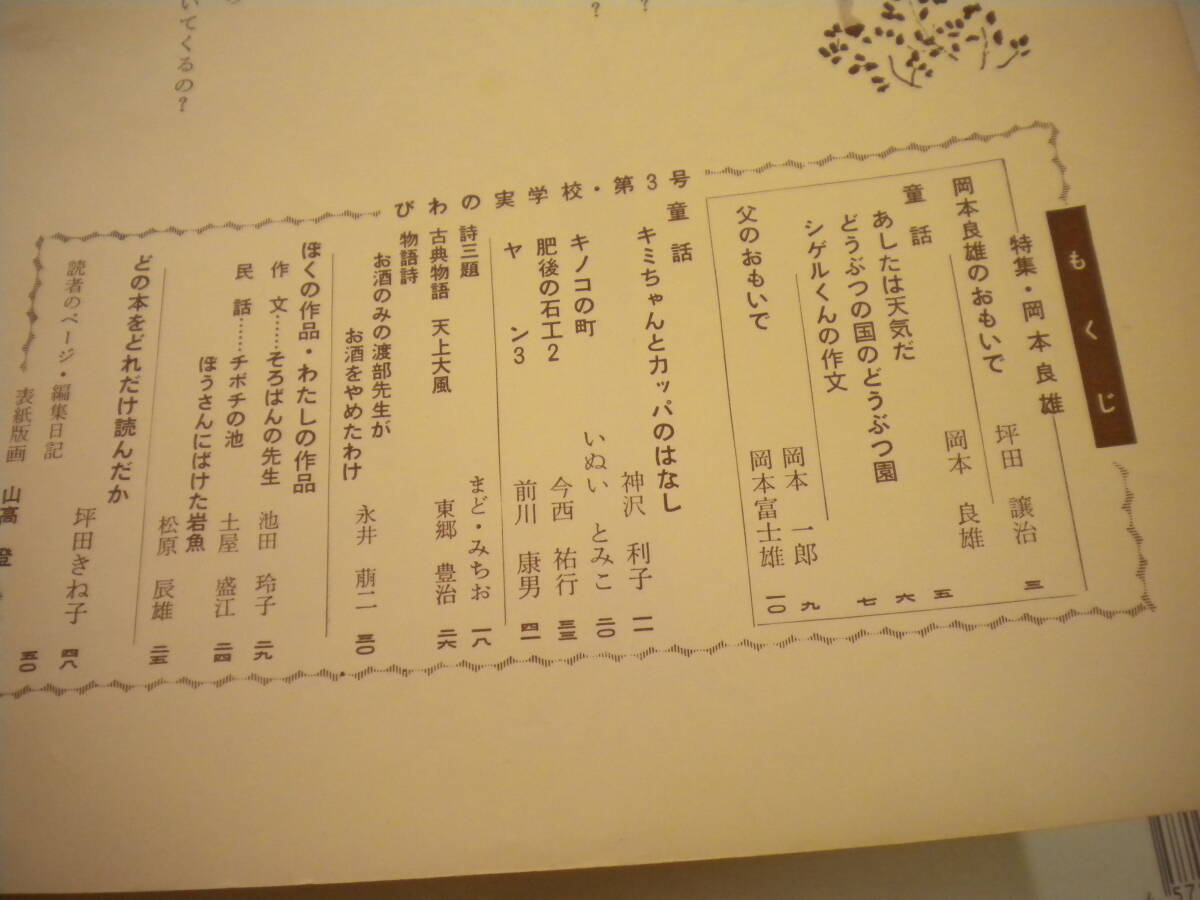 もくじ
特集・岡本良雄
岡本良雄のおもいで 坪田 譲治 三
童話
あしたは天気だ 岡本 良雄 五
どうぶつの国のどうぶつ園 六
シゲルくんの作文 七
岡本 一郎 九
父のおもいで 岡本富士雄 一〇
びわの実学校・第3号
童話
キミちゃんとカッパのはなし 神沢 利子 一一
キノコの町 いぬい とみこ 二〇
肥後の石工2 今西 祐行 三三
ヤン3 前川 康男 四一
詩三題 まど・みちお 一八
古典物語 天上大風 東郷 豊治 二六
物語詩
お酒のみの渡部先生が
お酒をやめたわけ 永井 萠二 三〇
ぼくの作品・わたしの作品
作文……そろばんの先生 池田 玲子 二九
民話……チポチの池 土屋 盛江 二四
ぼうさんにばけた岩魚 松原 辰雄 二五
どの本をどれだけ読んだか 坪田きね子 四八
読者のページ・編集日記 五〇
表紙版画 山高 登
いてくるの?
?
?
57